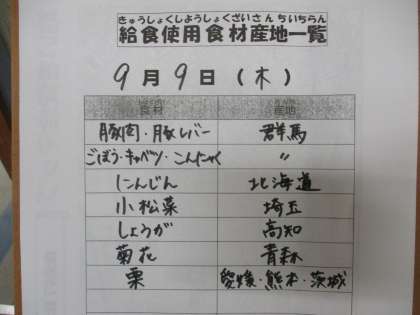 きゅうしょくしようしょくざいさんちいちらん
給食使用食材産地一覧
9月9日(木)
食材 産地
豚肉・豚レバー 群馬
ごぼう・キャベツ・こんにゃく 〃
にんじん 北海道
小松菜 埼玉
しょうが 高知
菊花 青森
栗 愛媛・熊本・茨城